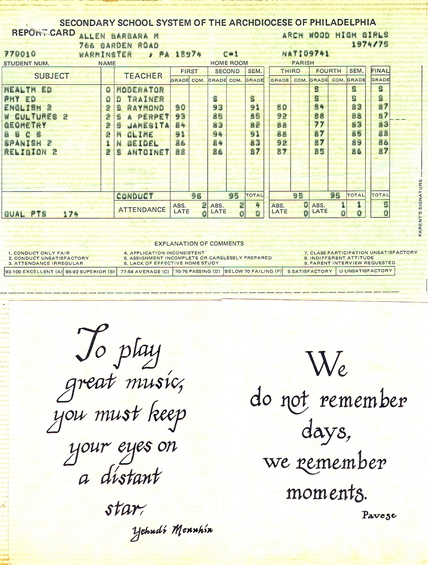 SECONDARY SCHOOL SYSTEM OF THE ARCHDIOCESE OF PHILADELPHIA
REPORT CARD ALLEN BARBARA M ARCH WOOD HIGH GIRLS
766 GARDEN ROAD 1974/75
770010 WARMINSTER , PA 18974 C=1 NATI09741
STUDENT NUM. NAME HOME ROOM PARISH
SUBJECT TEACHER FIRST SECOND SEM. THIRD FOURTH SEM. FINAL
GRADE COM. GRADE COM. GRADE GRADE COM. GRADE COM. GRADE GRADE
HEALTH ED 0 MODERATOR S S S
PHY ED 0 D TRAINER S S S S S
ENGLISH 2 2 S RAYMOND 90 91 91 80 84 83 87
W CULTURES 2 2 S A PERPET 93 85 85 92 88 88
GEOMETRY 2 S JAMESITA 84 83 82 88 77 83 83
B S C S 2 M CLIME 91 94 91 88 87 85 88
SPANISH 2 1 N GEIDEL 86 84 83 92 87 89 86
RELIGION 2 2 S ANTOINET 88 86 87 87 85 86 87
CONDUCT 95 95 TOTAL 95 95 TOTAL TOTAL
ATTENDANCE ABS. 2 ABS. 2 4 ABS. 0 ABS. 1 1 5
QUAL PTS 174 LATE 0 LATE 0 0 LATE 0 LATE 0 0 0
PARENT'S SIGNATURE
EXPLANATION OF COMMENTS
1. CONDUCT ONLY FAIR 4. APPLICATION INCONSISTENT 7. CLASS PARTICIPATION UNSATISFACTORY
2. CONDUCT UNSATISFACTORY 5. ASSIGNMENT INCOMPLETE OR CARELESSLY PREPARED 8. INDIFFERENT ATTITUDE
3. ATTENDANCE IRREGULAR 6. LACK OF EFFECTIVE HOME STUDY 9. PARENT INTERVIEW REQUESTED
93-100 EXCELLENT (A) 85-92 SUPERIOR (B) 77-84 AVERAGE (C) 70-76 PASSING (D) BELOW 70 FAILING (F) S SATISFACTORY U UNSATISFACTORY
To play
great music,
you must keep
your eyes on
a distant
star.
Yehudi Menuhin
We
do not remember
days,
we remember
moments.
Pavese